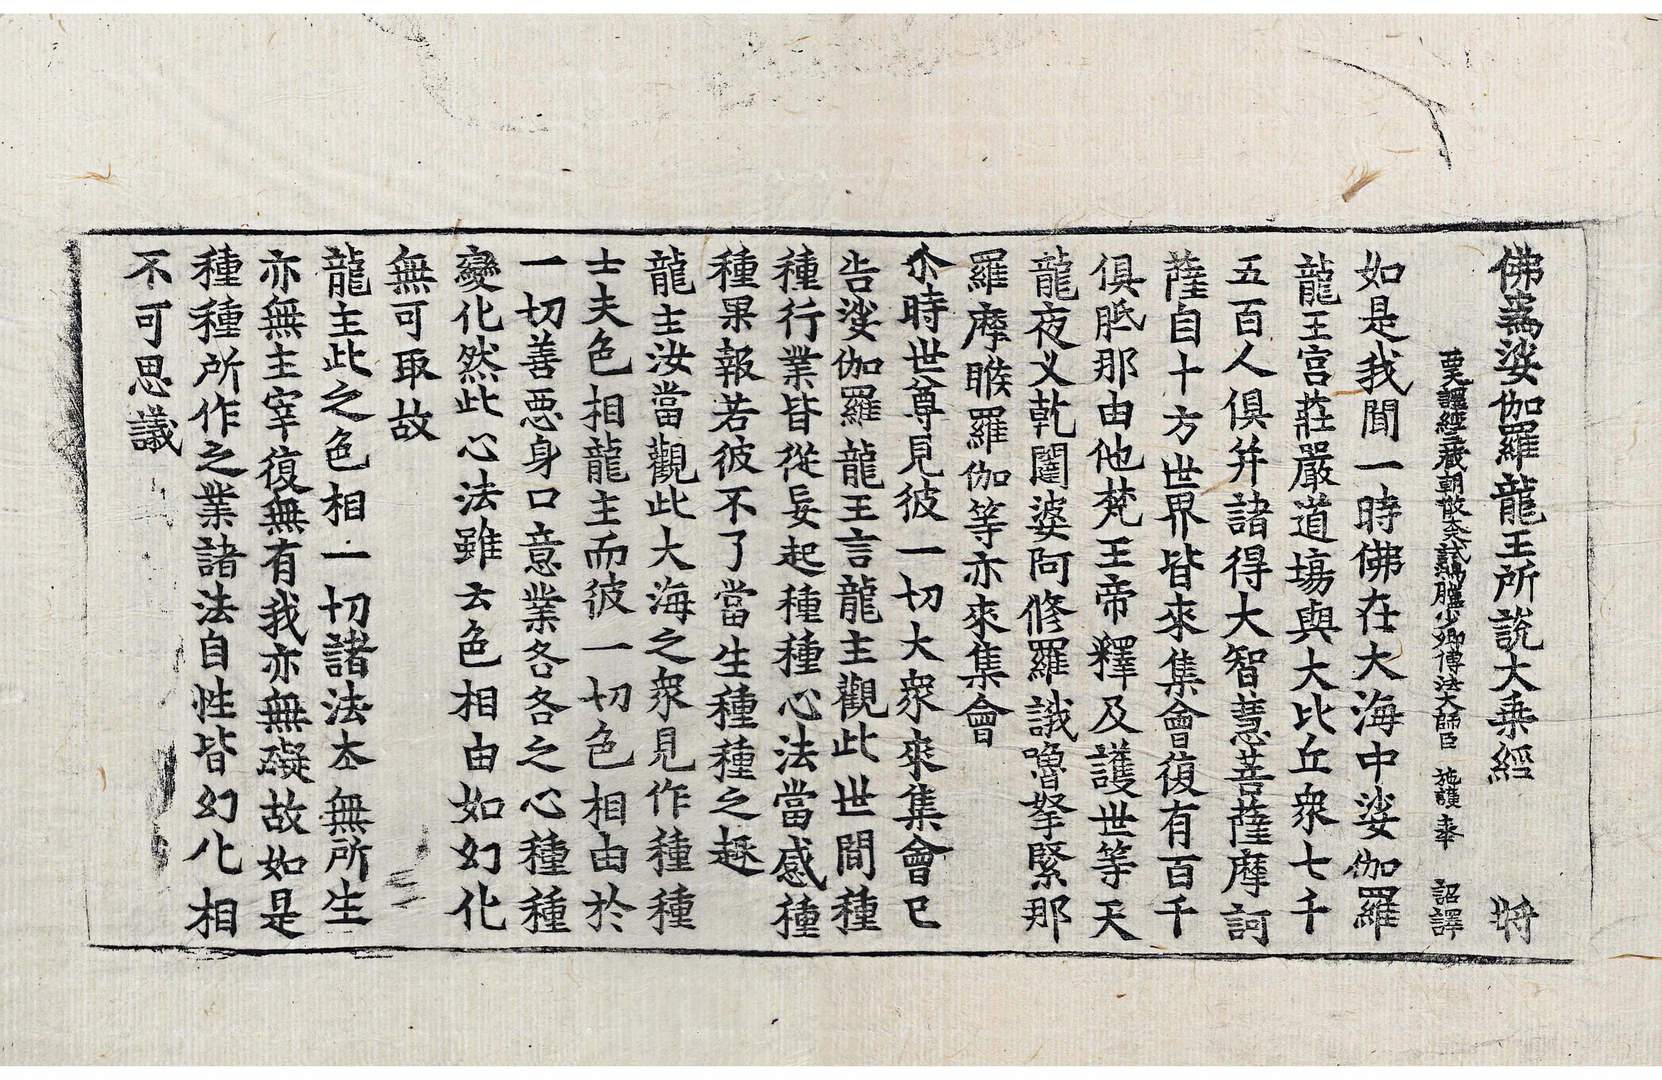 佛爲娑伽羅龍王所說大乘經 將
西天譯經三藏朝散大夫試鴻臚少卿傳法大師臣 施護 奉 詔譯
如是我聞一時佛在大海中娑伽羅
龍王宮莊嚴道塲與大比丘衆七千
五百人俱并諸得大智慧菩薩摩訶
薩自十方世界皆來集會復有百千
俱胝那由他梵王帝釋及護世等天
龍夜叉乾闥婆阿修羅誐嚕拏緊那
羅摩睺羅伽等亦來集會
尒時世尊見彼一切大衆來集會已
告娑伽羅龍王言龍主觀此世間種
種行業皆從妄起種種心法當感種
種果報若彼不了當生種種之趣
龍主汝當觀此大海之衆見作種種
士夫色相龍主而彼一切色相由於
一切善惡身口意業各各之心種種
變化然此心法雖云色相由如幻化
無可取故
龍主此之色相一切諸法本無所生
亦無主宰復無有我亦無礙故如是
種種所作之業諸法自性皆幻化相
不可思議